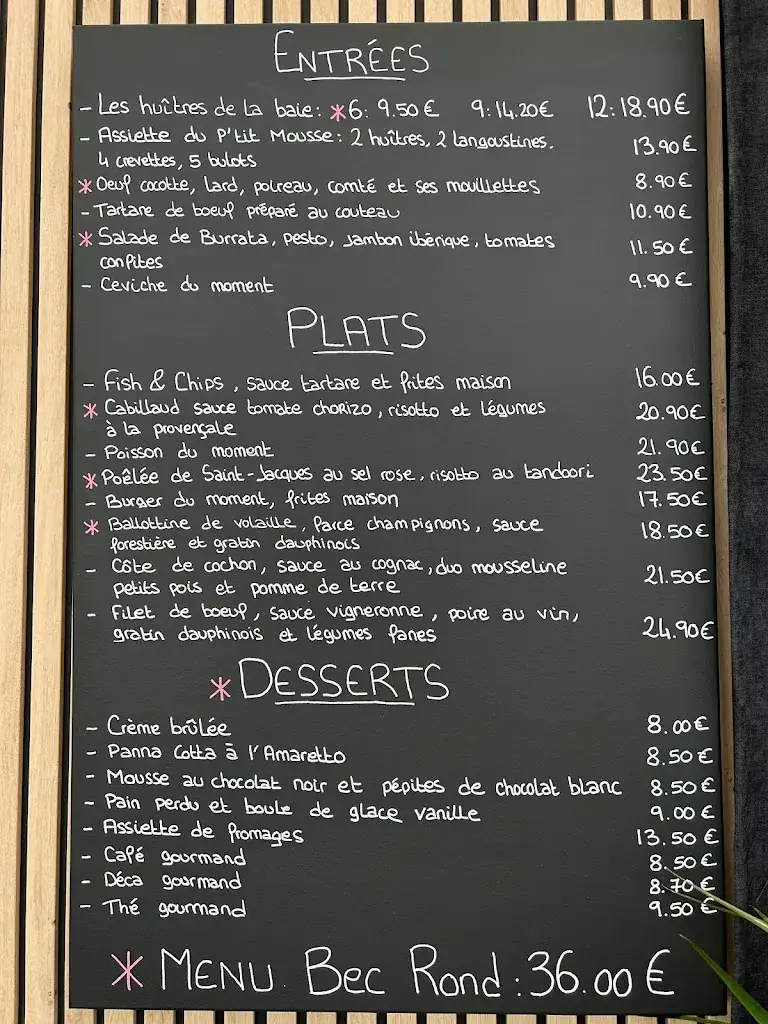 ENTRÉES
- Les huîtres de la baie: *6: 9.50€ 9: 14.20€ 12: 18.90€
- Assiette du P'tit Mousse: 2 huîtres, 2 langoustines, 13.90€
4 crevettes, 5 bulots
* Oeuf cocotte, lard, poireau, comté et ses mouillettes 8.90€
- Tartare de boeuf préparé au couteau 10.90€
* Salade de Burrata, pesto, jambon ibérique, tomates 11.50€
confites
- Ceviche du moment 9.90€
PLATS
- Fish & Chips, sauce tartare et frites maison 16.00€
* Cabillaud sauce tomate chorizo, risotto et légumes 20.90€
à la provençale
- Poisson du moment 21.90€
* Poêlée de Saint-Jacques au sel rose, risotto au tandoori 23.50€
- Burger du moment, frites maison 17.50€
* Ballottine de volaille, farce champignons, sauce 18.50€
forestière et gratin dauphinois
- Côte de cochon, sauce au cognac, duo mousseline 21.50€
petits pois et pomme de terre
- Filet de boeuf, sauce vigneronne, poire au vin, 24.90€
gratin dauphinois et légumes fanes
* DESSERTS
- Crème brûlée 8.00€
- Panna Cotta à l'Amaretto 8.50€
- Mousse au chocolat noir et pépites de chocolat blanc 8.50€
- Pain perdu et boule de glace vanille 9.00€
- Assiette de fromages 13.50€
- Café gourmand 8.50€
- Déca gourmand 8.70€
- Thé gourmand 9.50€
* MENU Bec Rond: 36.00€